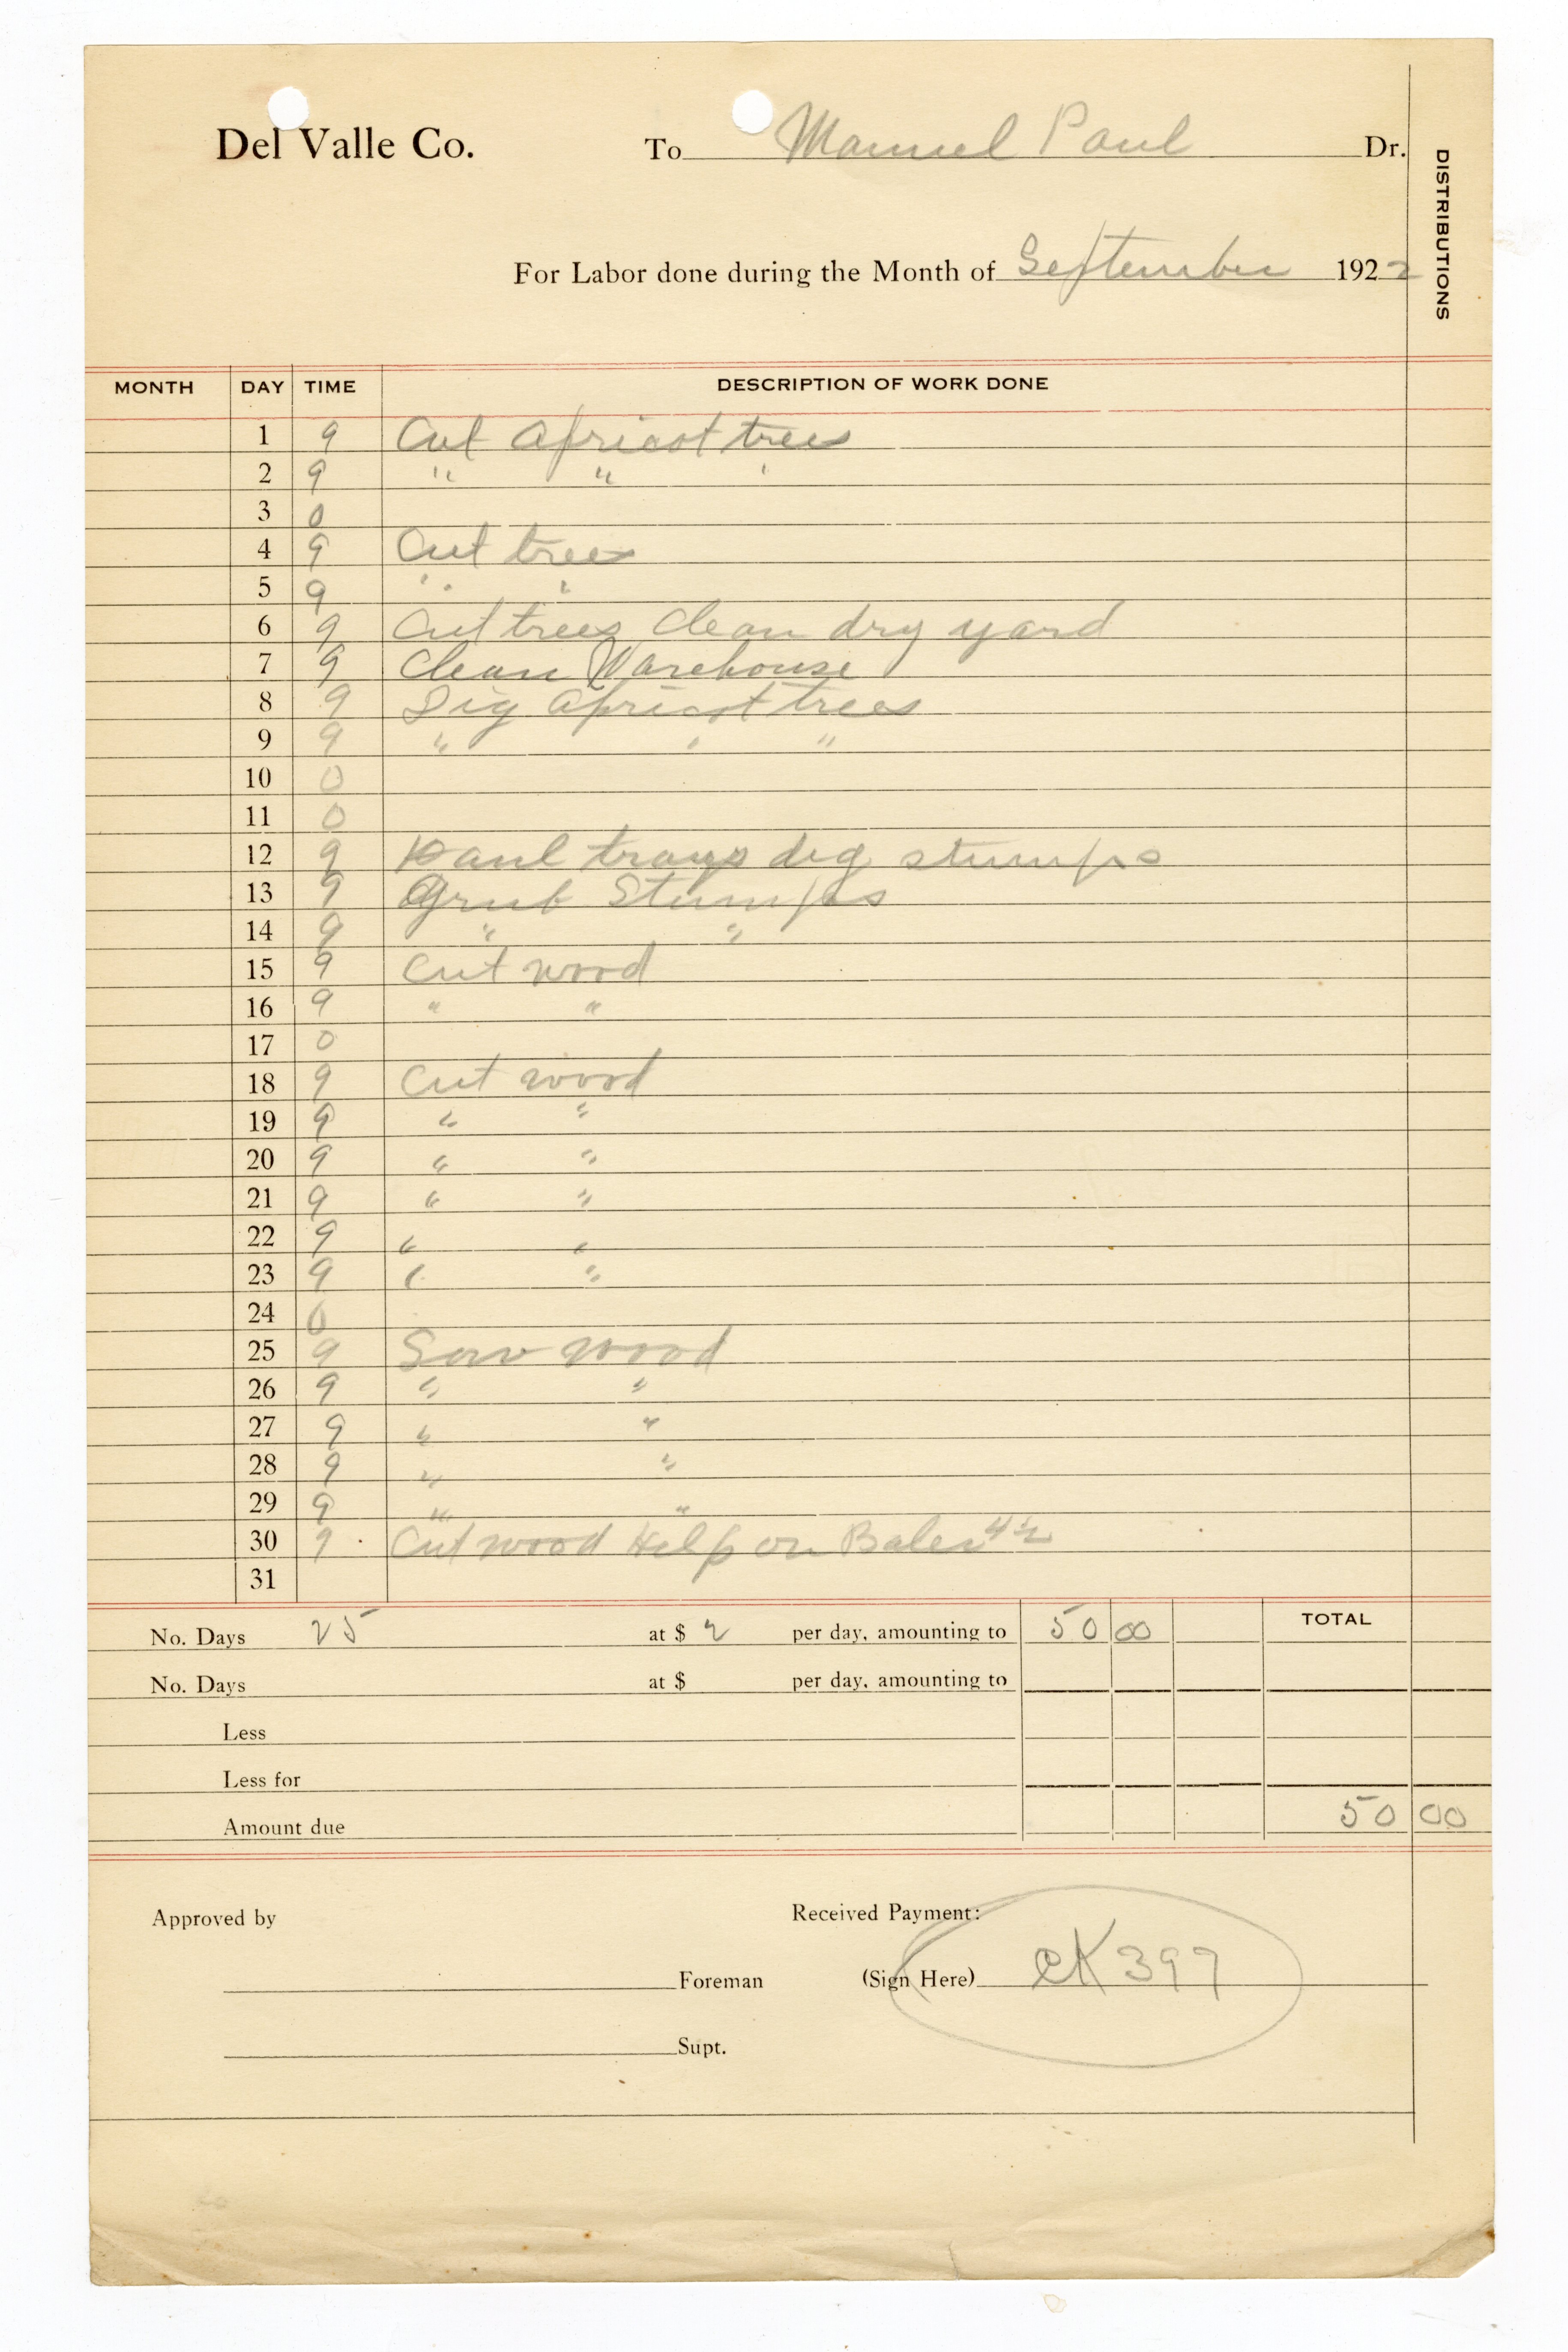 Del Valle Co. To Manuel Paul Dr.
DISTRIBUTIONS
For Labor done during the Month of September 1922
MONTH DAY TIME DESCRIPTION OF WORK DONE
1 9 Cut Apricot trees
2 9 " " "
3 0
4 9 Cut trees
5 9 " "
6 9 Cut trees Clean dry yard
7 9 Clean Warehouse
8 9 Dig Apricot trees
9 9 " " "
10 0
11 0
12 9 Haul trays dig stumps
13 9 Grub Stumps
14 9 " "
15 9 Cut wood
16 9 " "
17 0
18 9 Cut wood
19 9 " "
20 9 " "
21 9 " "
22 9 " "
23 9 " "
24 0
25 9 Saw wood
26 9 " "
27 9 " "
28 9 " "
29 9 " "
30 9 Cut wood Help on Baler 4½
31
No. Days 25 at $ 2 per day, amounting to 50 00 TOTAL
No. Days at $ per day, amounting to
Less
Less for
Amount due 50 00
Approved by Received Payment:
Foreman (Sign Here) CK 397
Supt.